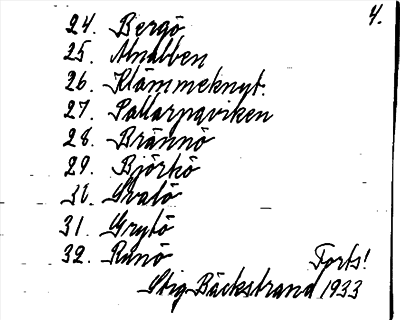 4.
24. Bergö
25. Alnabben
26. Klämmeknyt.
27. Pallarpaviken
28. Brännö
29. Björkö
31. Grytö
32. Runö
Forts!
Stig Bäckstrand 1933